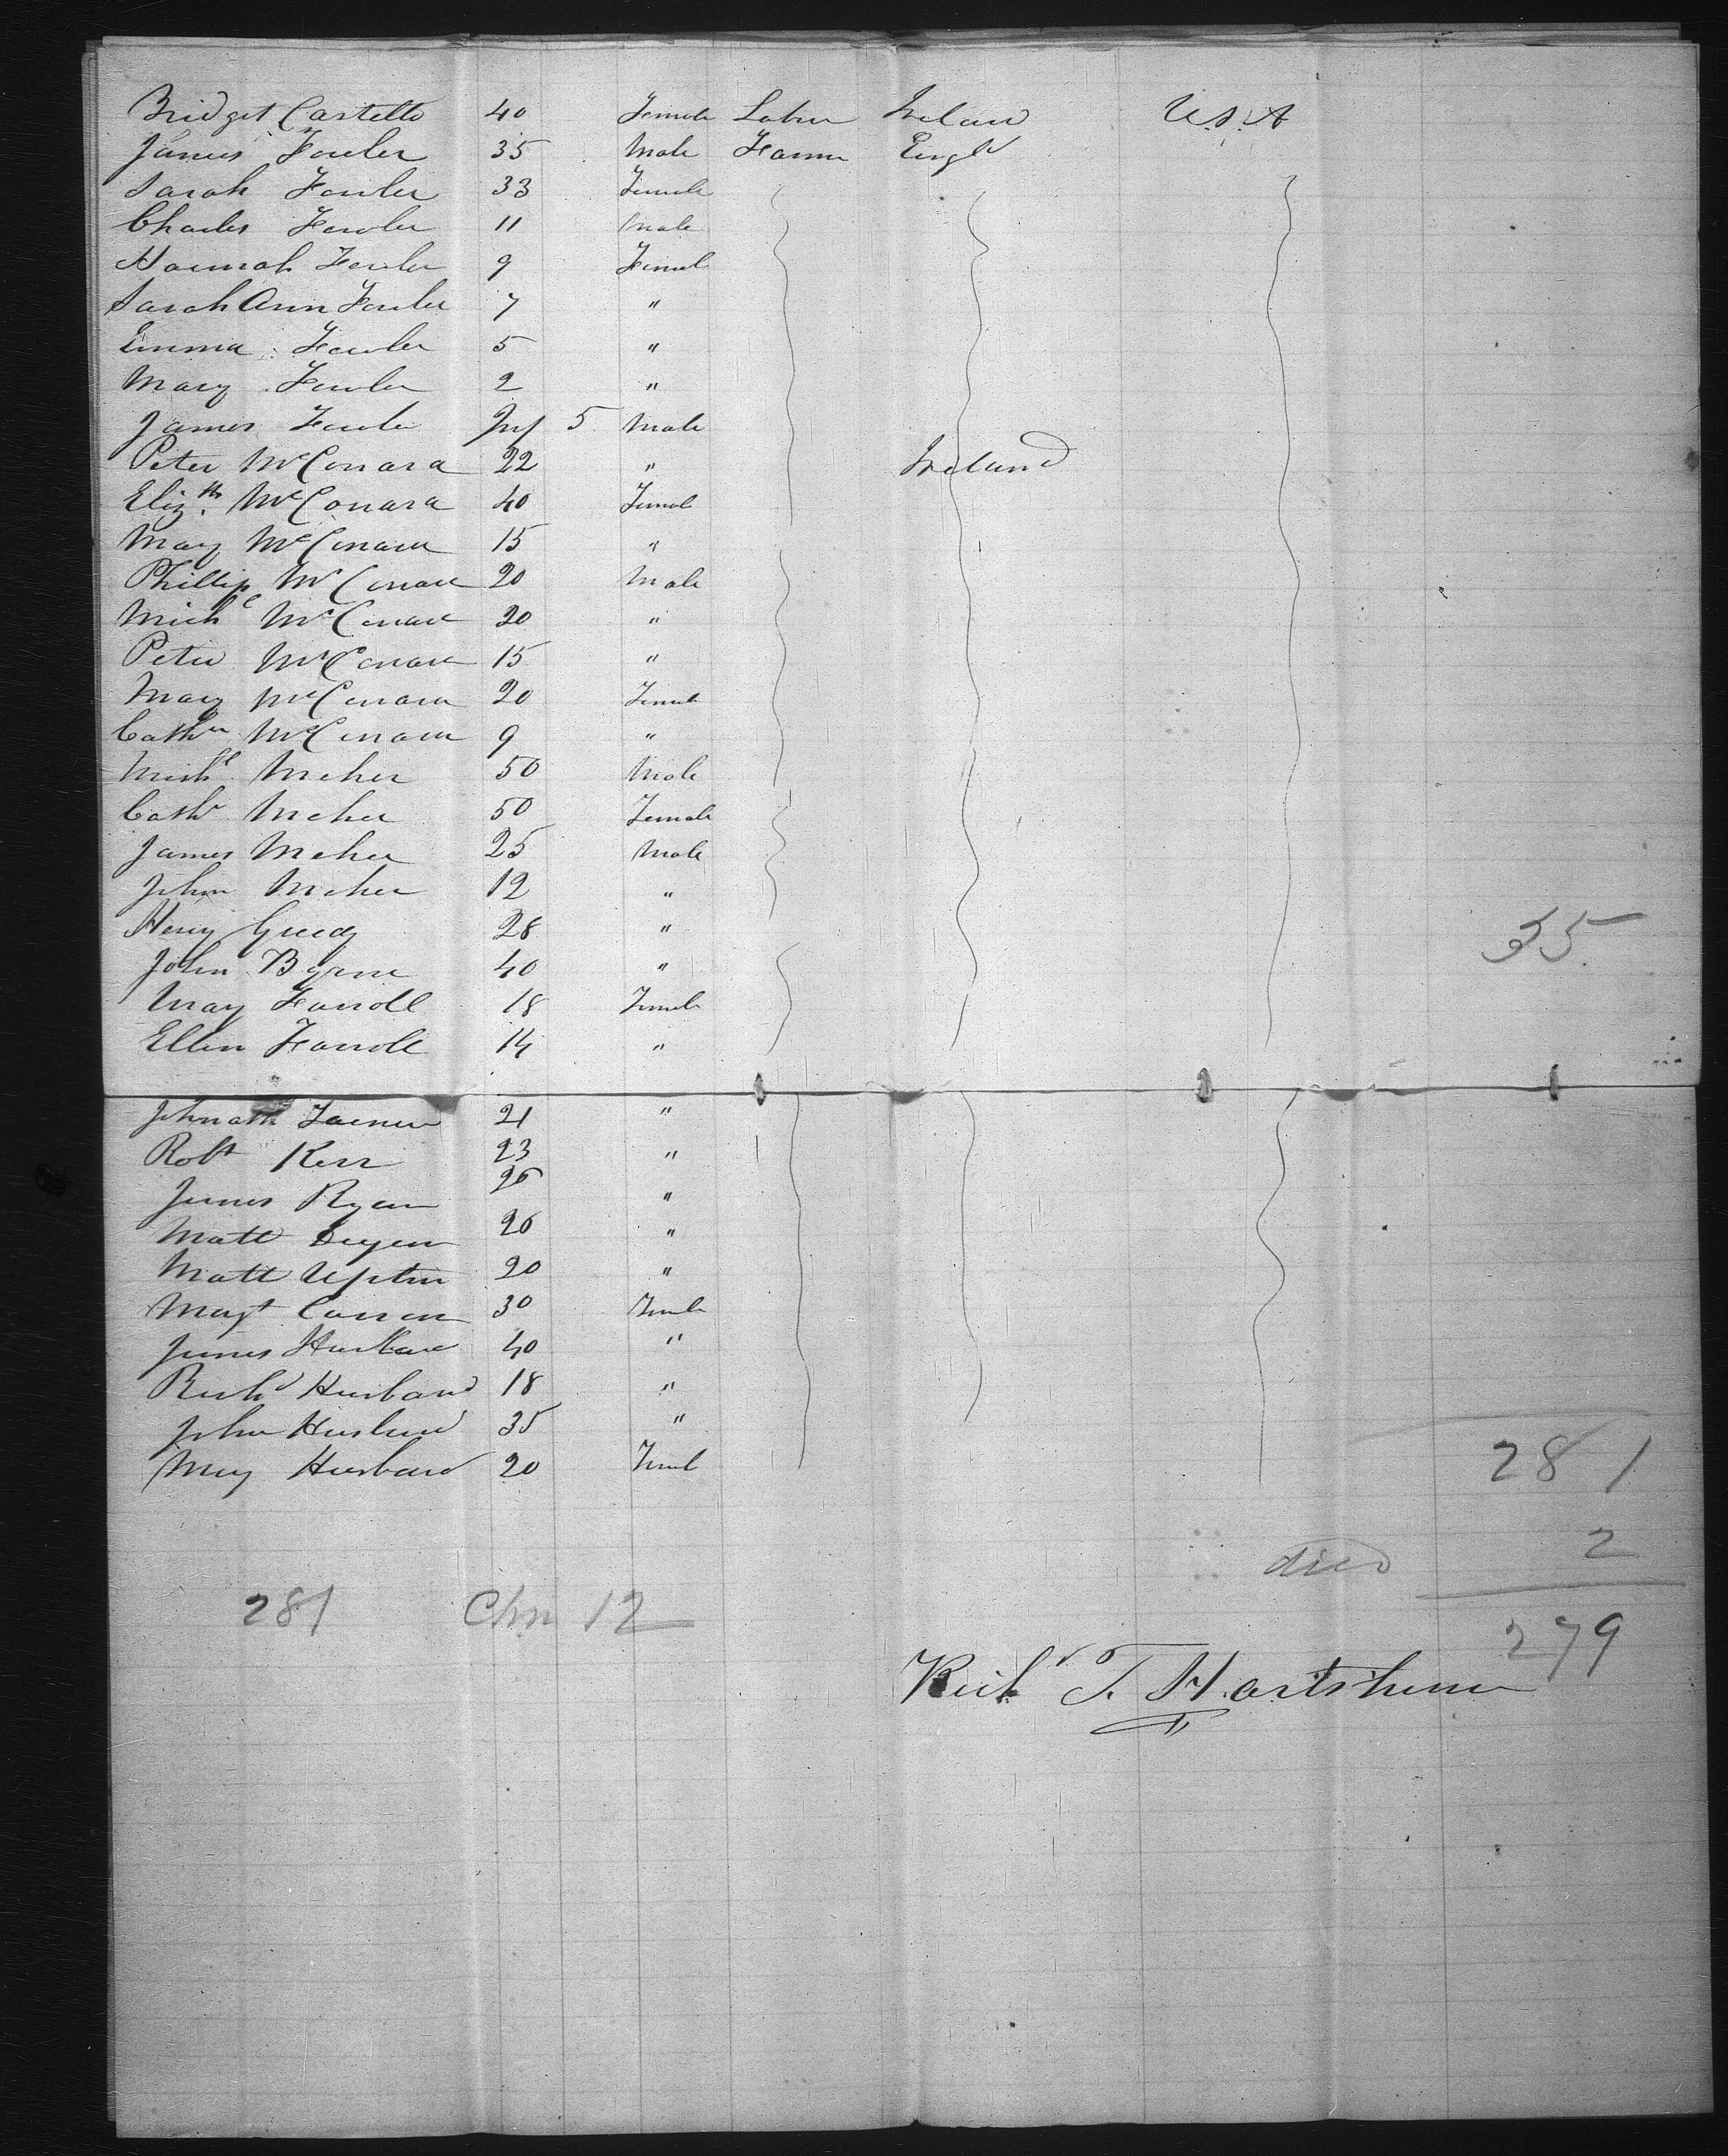 Bridget Castello 40 Female Labor Ireland U.S.A
James Fowler 35 Male Farmer Engld
Sarah Fowler 33 Female
Charles Fowler 11 Male
Hannah Fowler 9 Femal
Sarah Ann Fowler 7 "
Emma Fowler 5 "
Mary Fowler 2 "
James Fowler Inf 5 Male
Peter McConara 22 " Ireland
Elizth McConara 40 Femal
Mary McConara 15 "
Phillip McConara 20 Male
Michl McConara 20 "
Peter McConara 15 "
Mary McConara 20 Female
Cathn McConara 9 "
Michl Meher 50 Male
Cath Meher 50 Female
James Meher 25 Male
John Meher 12 "
Henry 28 "
35
John Byrne 40 "
Mary Farroll 18 Female
Ellen Farroll 14 "
21 "
Robt Kerr 23 "
James Ryan 26 "
Matt 26 "
Matt Upton 20 "
Magt Curran 30 Female
James Husband 40 "
Richd Husband 18 "
John Husband 35 "
May Husband 20 Femal
281
died 2
281 Chn 12
279
Richd T. Hartshorne